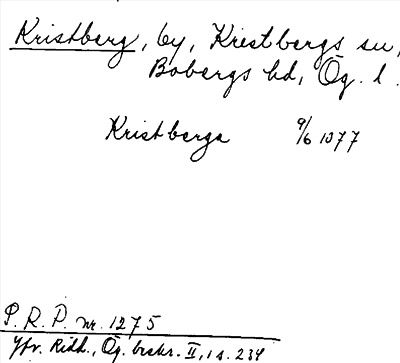 Kristberg, by, Kristbergs sn,
Bobergs hd, Ög. l.
Kristberga 9/6 1377
P. R. P. nr. 1275
Jfr. Ridh., Ög. beskr. II, 1 s. 234